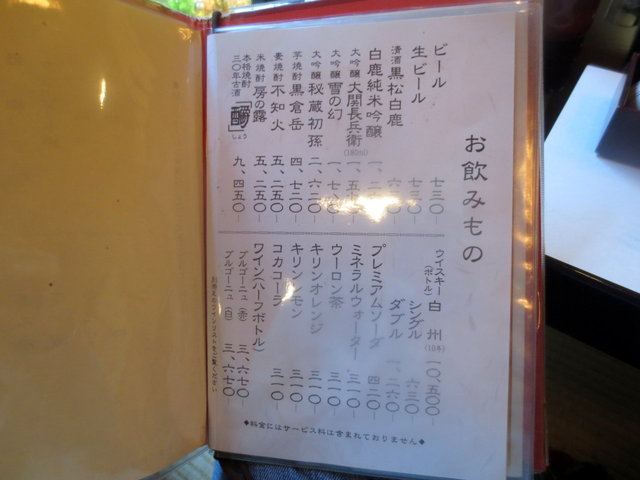 お飲みもの
ビール 七三〇
生ビール 七三〇
清酒 黒松白鹿
白鹿純米吟醸
大吟醸 大関長兵衛 (180ml)
大吟醸 雪の幻
大吟醸 秘蔵初孫 二、六二〇
芋焼酎 黒倉岳 四、七二〇
麦焼酎 不知火 五、二五〇
米焼酎 房の露 五、二五〇
本格焼酎 三〇年古酒 しょう 九、四五〇
ウイスキー (ボトル) 白州 (10年) 一〇、五〇〇
シングル 六三〇
ダブル 一、二六〇
プレミアムソーダ 四二〇
ミネラルウォーター 三一〇
ウーロン茶 三一〇
キリンオレンジ 三一〇
キリンレモン 三一〇
コカコーラ 三一〇
ワイン(ハーフボトル)
ブルゴーニュ(赤) 三、六七〇
ブルゴーニュ(白) 三、六七〇
別冊のワインリストをご覧ください
◆料金にはサービス料は含まれておりません◆